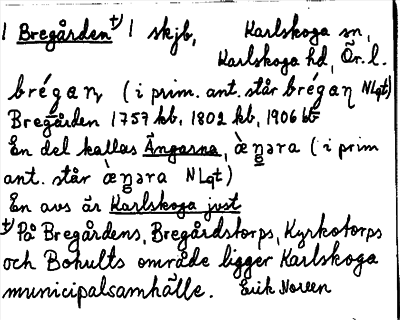 1 Bregården †) 1 skjb, Karlskoga sn,
Karlskoga hd, Ör. l.
brégaɳ (i prim. ant. står brégaɳ NLgt)
Bregården 1757 kb, 1802 kb, 1906 bt
En del kallas Ängarna, ὰŋəra (i prim
ant. står ὰŋəra NLgt)
En avs är Karlskoga just
†) På Bregårdens, Bregårdstorps, Kyrkotorps
och Bohults område ligger Karlskoga
municipalsamhälle. Erik Noreen